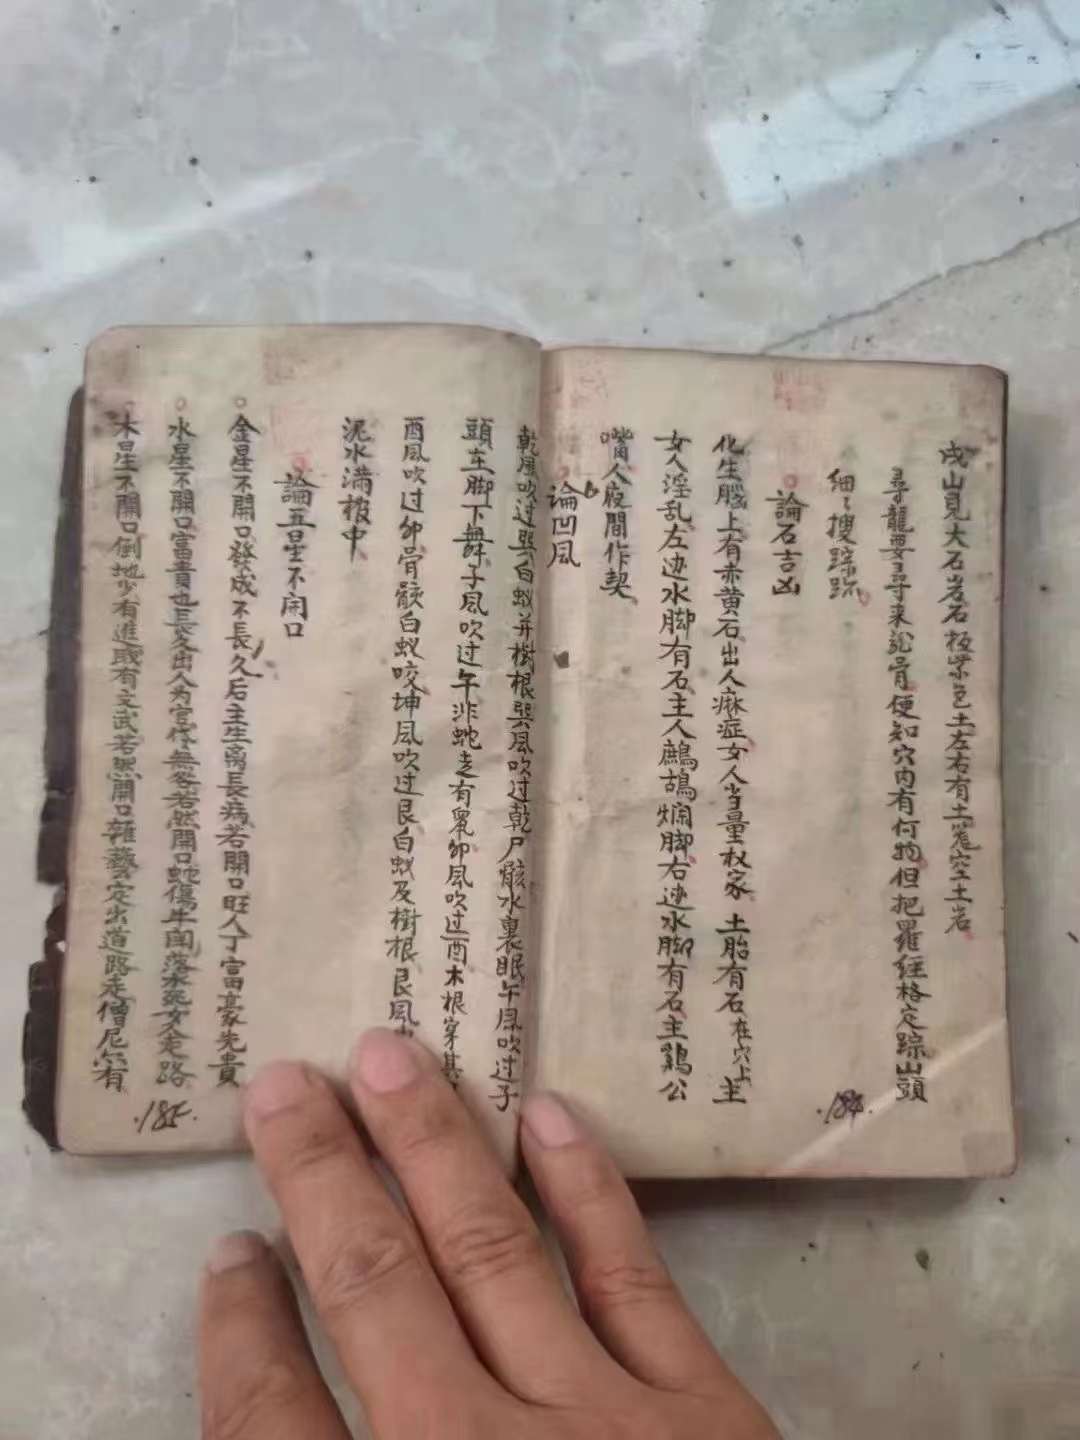 戌山見大石岩石板紫色土左右有土窟空土岩
尋龍要尋来訟骨便知穴内有何物但把羅経格定踪山頭
細々搜踪跡
論石吉凶
化生腦上有赤黄石出人痳症女人当量权家 土胎有石在穴上主
女人淫乱左边水脚有石主人鷓鴣爛脚右边水脚有石主鷄公
嘴人夜間作契
論凹風
乾風吹过巽白蚁并樹根巽風吹过乾尸骸水裏眠午風吹过子
頭在脚下舞子風吹过午非蛇走有衆卯風吹过酉木根穿其
酉風吹过卯骨骸白蚁咬坤風吹过艮白蚁及樹根艮風
泥水满棺中
論五星不闲口
金星不開口發成不長久后主生离長病若開口旺人丁富豪先貴
水星不開口富貴也長久出人为官代無忝若然開口蛇傷牛闻落水死女走路
木星不開口倒地少有進或有文武若然開口雜藝定出道路走僧尼尔有
·185·
·184·